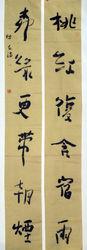 桃紅復含宿雨
柳綠更帶朝煙